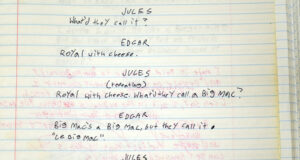 JULES
What'd they call it?
EDGAR
Royal with cheese.
JULES
(repeating)
Royal with cheese. What'd they call a Big Mac?
EDGAR
Big Mac's a Big Mac, but they call it
"Le Big Mac"
JULES